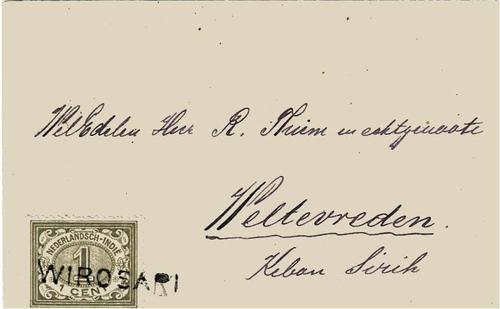 WelEdelen Heer R. Thiem en echtgenoote
Weltevreden.
Kebon Sirih
NEDERLANDSCH-INDIË
1
CENT
WIROSARI